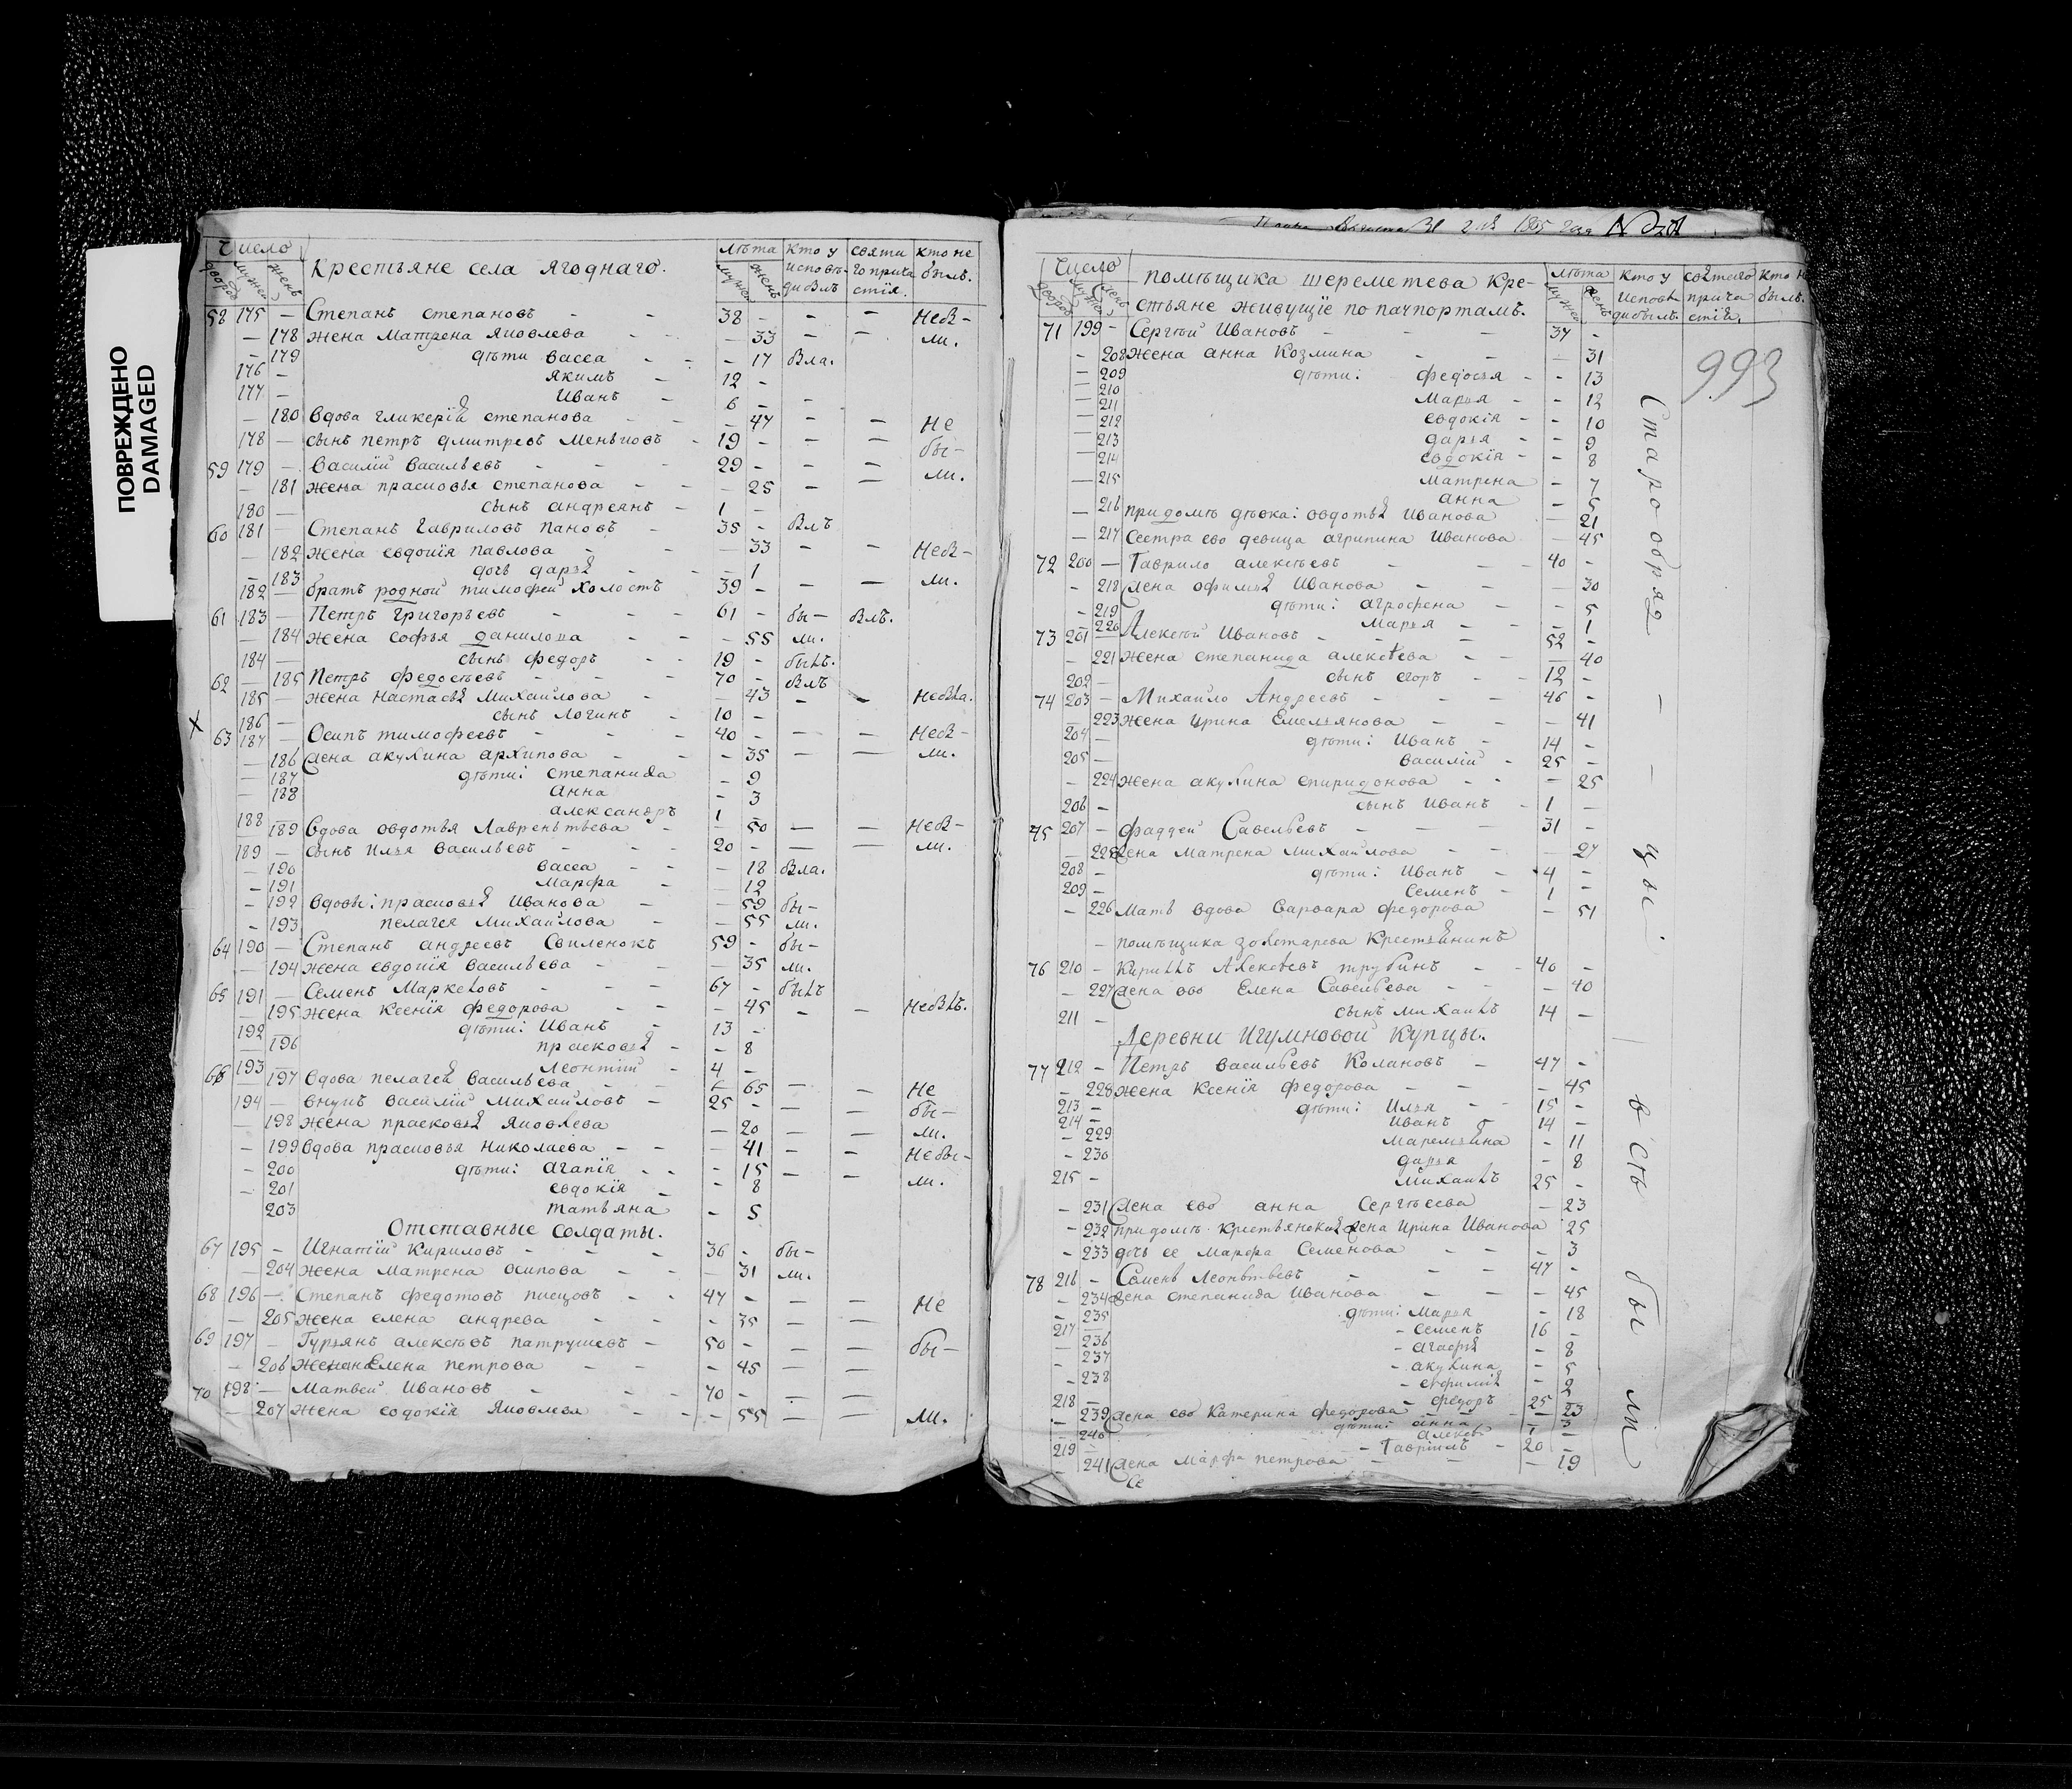 ПОВРЕЖДЕНО
DAMAGED
Число
дворовъ мужей женъ
Крестьяне села Ягоднаго.
лѣта
мужей женъ
кто у исповѣди былъ
святаго причастія
кто не былъ.
58 175 — Степанъ степановъ - - 38 - - — Небы-
— 178 жена Матрена Яковлева - - 33 — ли.
— 179 дѣти васса - - - 17 была.
176 — якимъ - 12 -
177 — Иванъ - 6 -
— 180 вдова гликерія степанова - - 47 - — Не
178 — сынъ петръ дмитревъ - 19 - — — бы-
59 179 — Василій васильевъ - - - 29 - — — ли.
— 181 жена прасковья степанова - - — 25 — —
180 — сынъ андреянъ - 1 -
60 181 — Степанъ гавриловъ пановъ - 35 - былъ
— 182 жена евдокія павлова - - — 33 - - Небы-
— 183 дочь дарья - - - 1 ли.
182 — братъ родной тимофей холостъ 39 - - —
61 183 — Петръ григорьевъ - - - 61 - бы- былъ.
— 184 жена софья данилова - - - 55 ли.
184 — сынъ федоръ - - 19 - былъ.
62 — 185 Петръ федосѣевъ - - - 70 - былъ
185 — жена настасья михаилова - - 43 - - небыла.
186 — сынъ логинъ - 10 -
х 63 187 — Осипъ тимофеевъ - - - 40 - — — Небы-
— 186 жена акулина архипова - - - 35 — — ли.
— 187 дѣти: степанида - 9
— 188 анна - 3
188 — александръ 1 -
— 189 вдова овдотья лаврентьева - — 50 — — Небы-
189 — сынъ илья васильевъ - - - 20 - — — ли.
— 190 васса - — 18 была.
— 191 марфа - — 12
— 192 вдовы: прасковья иванова - — 59 бы-
— 193 пелагея михаилова - — 55 ли.
64 190 — Степанъ андреевъ 59 - бы-
— 194 жена евдокія васильева - - — 35 ли.
65 191 — Семенъ маркеловъ - - - 67 - былъ
— 195 жена ксенія федорова - - - 45 - — небылъ.
192 — дѣти: Иванъ - 13 -
— 196 прасковья - - 8
193 — леонтій - 4 -
66 — 197 вдова пелагея васильева - - - 65 — — Не
194 — внукъ василій михаиловъ - 25 - — — бы-
— 198 жена прасковья яковлева — 20 — — ли.
— 199 вдова прасковья николаева - - — 41 — - Небы-
— 200 дѣти: агапія - - - 15 — — ли.
— 201 евдокія - - 8
203 татьяна - 5
Отставные солдаты.
67 195 — Игнатій кириловъ - - - 36 - бы-
— 204 жена матрена осипова - - — 31 ли.
68 196 — Степанъ федотовъ писцовъ - - 47 - — — Не
— 205 жена елена андрева - - - 35 — —
69 197 — Гурьянъ алексѣевъ патрушевъ - 50 - — — бы-
— 206 елена петрова - - - 45 — —
70 198 — Матвей ивановъ - - - 70 - — —
— 207 жена евдокія яковлева - - - 55 — — ли.
1865 года
993
Число
дворовъ мужей женъ
помѣщика шереметева кре-
стьяне живущіе по пачпортамъ.
лѣта
мужей женъ
кто у исповѣди былъ.
святаго причастія.
кто не былъ.
71 199 - Сергѣй Ивановъ - - - 37 -
— 208 жена анна козмина - - — 31
— 209 дѣти: федосья - - 13
— 210 марья - - 12
— 211 евдокія - - 10
— 212 дарья - - 9
— 213 евдокія - - 8
— 214 матрена — 7
— 215 анна - 5
— 216 при домѣ дѣвка: овдотья иванова — 21
— 217 сестра ево девица агрипина иванова — 45
72 200 — Гаврило алексѣевъ - - - 40 -
— 218 жена офимья иванова - - — 30
— 219 дѣти: агрофена - - 5
— 220 марья - - 1
73 201 — Алексѣй Ивановъ - - - 52 -
— 221 жена степанида алексѣева - - — 40
202 — сынъ егоръ - - 12 -
74 203 — Михаило Андреевъ - - - 46 -
— 223 жена ирина емельянова - - — 41
204 — дѣти: Иванъ - 14 -
205 — василій - 25 -
— 224 жена акулина спиридонова - - — 25
206 — сынъ иванъ - 1 —
75 207 — фаддей Савельевъ - - - 31 -
— 225 жена матрена михаилова - - — 27
208 — дѣти: Иванъ - 4 -
209 — семенъ - 1 -
— 226 мать вдова варвара федорова - 51
— помѣщика золотарева крестьянинъ
76 210 — Кирилъ Алексѣевъ трубинъ - - 40 -
— 227 жена ево Елена Савельева - - — 40
211 — сынъ михаилъ 14 —
Деревни Игумновой купцы.
77 212 — Петръ васильевъ колановъ - 47 -
— 228 жена ксенія федорова - - — 45
213 — дѣти: илья - - 15 -
214 — иванъ - 14 -
— 229 маремьяна - 11
— 230 дарья - 8
215 — михаилъ 25 -
— 231 жена ево анна сергѣева — 23
— 232 при домѣ крестьянская жена ирина иванова 25
— 233 дочь ее марфа семенова - - — 3
78 216 — Семенъ леонтьевъ - - - 47 -
— 234 жена степанида иванова - - - 45
— 235 дѣти: марья - 18
217 — семенъ 16 -
— 236 - агафья - 8
— 237 - акулина - 5
— 238 - евфимія - 2
218 — - федоръ 25 -
— 239 жена ево катерина федорова - — 23
— 240 дѣти: анна - 3
219 — - Гавріилъ - 20 -
— 241 жена марфа петрова - - — 19
Се
Старообряд — — цы. всѣ были